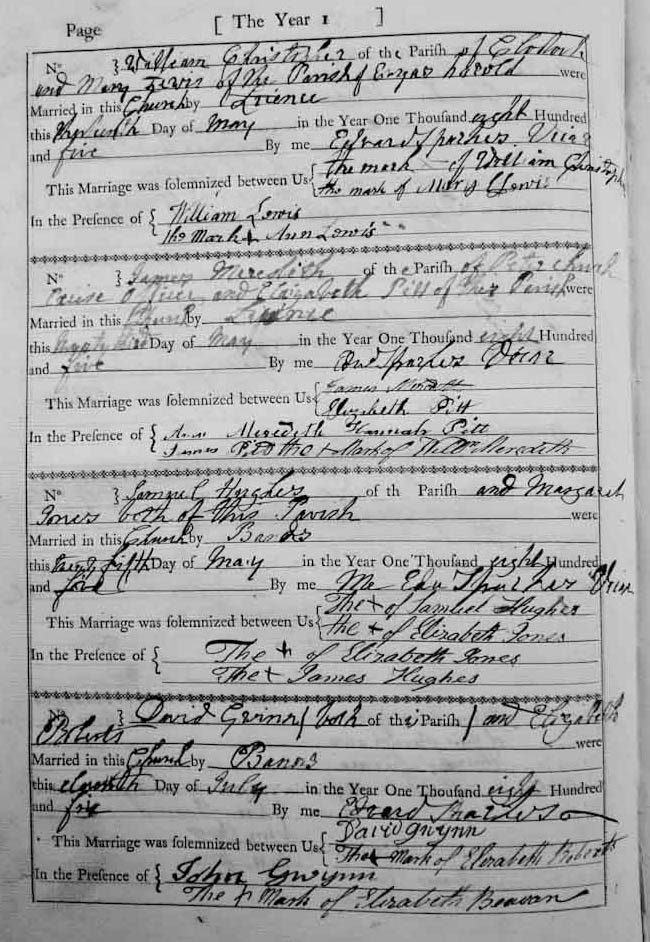 Page [ The Year 1 ]
No } William Christopher of the Parish of Clodock
and Mary Lewis of the Parish of Ewyas harold were
Married in this Church by Licence
this Day of May in the Year One Thousand eight Hundred
and five By me Edward Sparkes Vicar
This Marriage was solemnized between Us { the mark of William Christopher
the mark of Mary Lewis
In the Presence of { William Lewis
the Mark + Ann Lewis
No } James Meredith of the Parish of Peterchurch
and Elizabeth Pitt of this Parish were
Married in this Church by Licence
this Day of May in the Year One Thousand eight Hundred
and five By me Edwd Sparkes Vicar
This Marriage was solemnized between Us { James Meredith
Elizabeth Pitt
In the Presence of { Ann Meredith Hannah Pitt
James Pitt the + Mark of Meredith
No } Samuel Hughes of th Parish and Margaret
Jones both of this Parish were
Married in this Church by Banns
this twenty fifth Day of May in the Year One Thousand eight Hundred
and five By me Me Edw Sparkes Vicar
This Marriage was solemnized between Us { The + of Samuel Hughes
the + of Elizabeth Jones
In the Presence of { The + of Elizabeth Jones
The + James Hughes
No } David Gwinn ( both of this Parish ) and Elizabeth
Roberts were
Married in this Church by Banns
this eleventh Day of July in the Year One Thousand eight Hundred
and five By me Edward Sparkes
This Marriage was solemnized between Us { David Gwynn
The + Mark of Elizabeth Roberts
In the Presence of { John Gwynn
The + Mark of Elizabeth Beavan